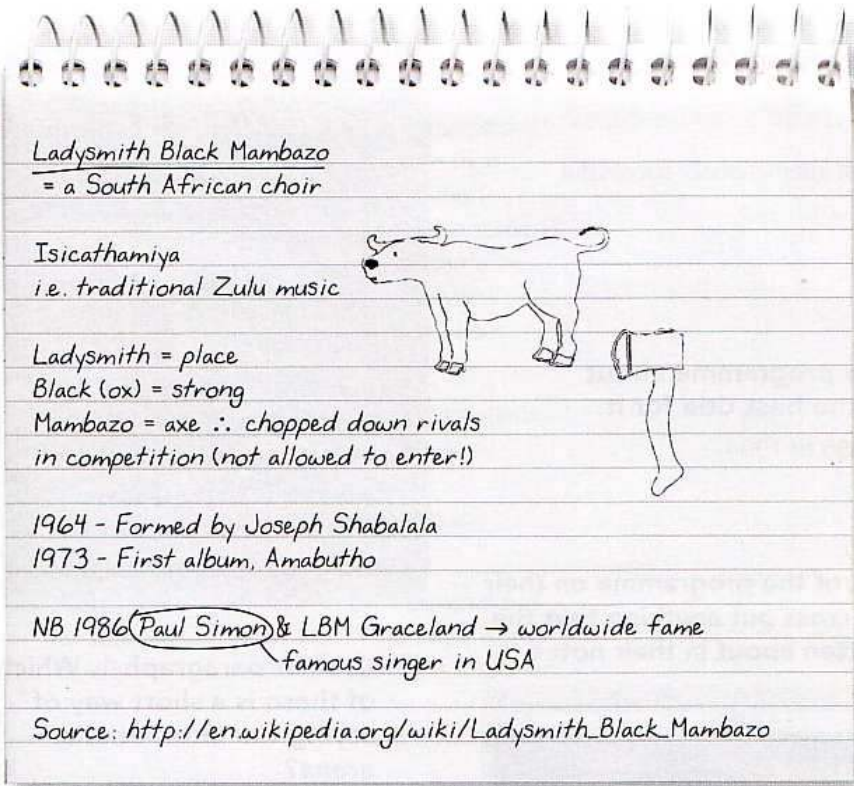 Ladysmith Black Mambazo
= a South African choir
Isicathamiya
i.e. traditional Zulu music
Ladysmith = place
Black (ox) = strong
Mambazo = axe ∴ chopped down rivals
in competition (not allowed to enter!)
1964 - Formed by Joseph Shabalala
1973 - First album, Amabutho
NB 1986 Paul Simon & LBM Graceland → worldwide fame
famous singer in USA
Source: http://en.wikipedia.org/wiki/Ladysmith_Black_Mambazo